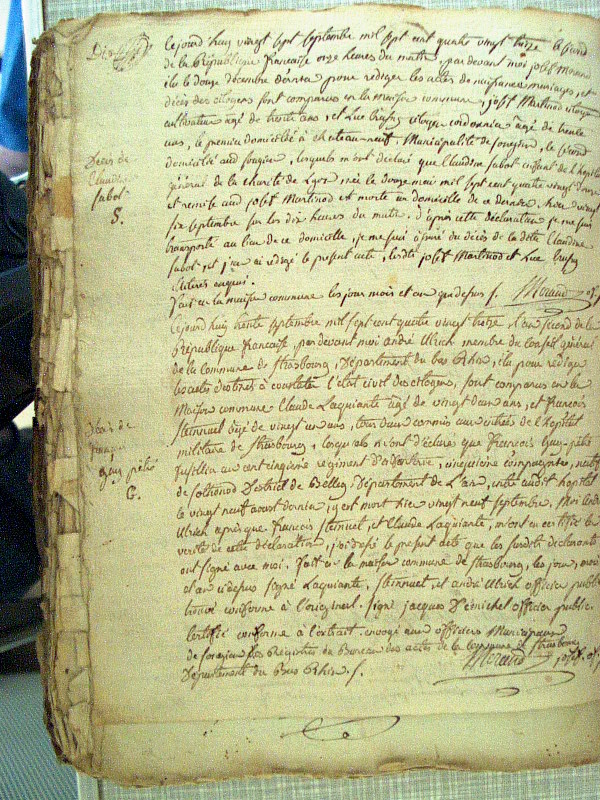 Le jourd huy vingt sept septembre mil sept cent quatre vingt treize le second
de la République française onze heures du matin, par devant moi
élu le douze décembre dernier pour rédiger les actes de naissance mariages, et
décès des citoyens sont comparus en la maison commune, joseph Martinod
cultivateur agé de trente ans, et Luc citoyen cordonnier agé de trente
ans, le premier domicilié à chateau-neuf, Municipalité de songieu, le second
domicilié aud songieu, lesquels m'ont déclaré que Claudine jabot enfant de l'hopital
général de la charité de Lyon née le douze mai mil sept cent quatre vingt
et remise aud joseph Martinod est morte au domicile de ce dernier, hier vingt
six septembre sur les dix heures du matin. d'après cette déclaration je me suis
transporté au lieu de ce domicile, je me suis assuré du décès de la dite Claudine
jabot, et j'en ai rédigé le présent acte, lesdits joseph Martinod et Luc
illitérés enquis.
Fait en la maison commune les jour mois et an que dessus
Décès de
Claudine
jabot
S.
Cejourd'huy trente septembre mil sept cent quatre vingt treize l'an second de la
République française, par devant moi andré Ulrich membre du Conseil général
de la commune de Strasbourg, Département du bas Rhin, élu pour rédiger
les actes destinés à constater l'état civil des citoyens, sont comparus en la
Maison commune Claude Laquiante agé de vingt deux ans, et françois
Steinnuel agé de vingt un ans, tous deux commis aux entrées de l'hopital
militaire de Strasbourg, lesquels m'ont déclaré que françois Guy-pelio
fusillier au cent cinqième régiment d'infanterie, cinquième compagnie, natif
de District de Belley, Département de L'ain, entré audit hopital
le vingt neuf aoust dernier, y est mort hier vingt neuf septembre, Moi andré
Ulrich après que françois Steinnuel, et Claude Laquiante, m'ont eu certifié la
vérité de cette déclaration, j'ai dressé le présent acte que les susdits déclarants
ont signé avec moi. fait en la maison commune de strasbourg, les jour, mois
et an ci dessus signé Laquiante, Steinnuel, et andré Ulrich officier public
trouvé conforme à l'original. Signé jacques officier public.
Certifié conforme à l'extrait envoyé aux officiers Municipaux
de songieu les Registres du Bureau des actes de la Commune de Strasbourg
Département du Bas Rhin.
Décès de
françois
guy pelio
G.